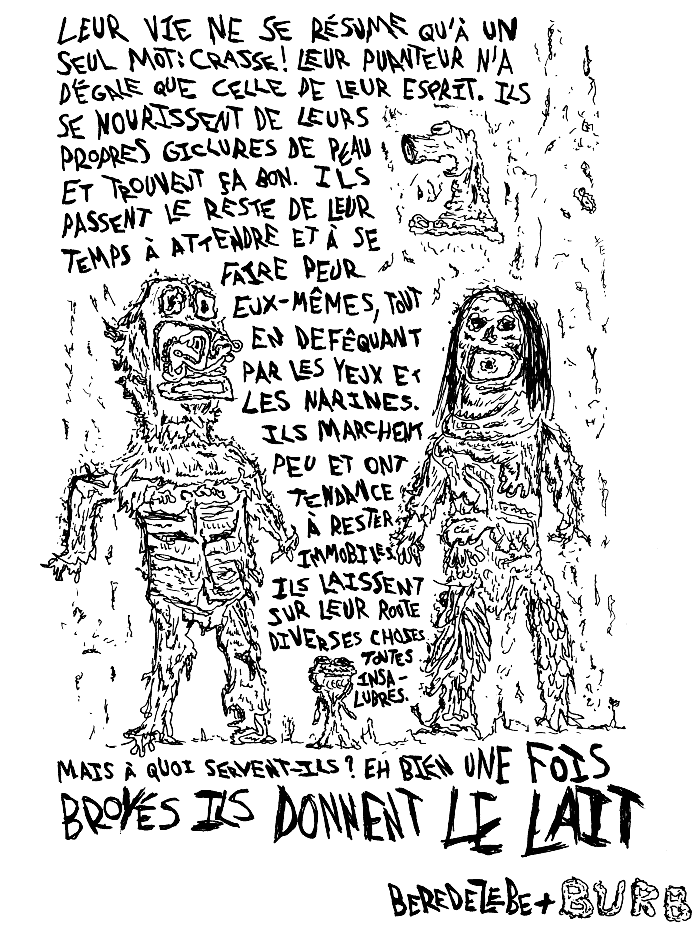 LEUR VIE NE SE RÉSUME QU'À UN
SEUL MOT: CRASSE! LEUR PUANTEUR N'A
D'ÉGALE QUE CELLE DE LEUR ESPRIT. ILS
SE NOURISSENT DE LEURS
PROPRES GICLURES DE PEAU
ET TROUVENT ÇA BON. ILS
PASSENT LE RESTE DE LEUR
TEMPS À ATTENDRE ET À SE
FAIRE PEUR
EUX-MÊMES, TOUT
EN DEFÊQUANT
PAR LES YEUX ET
LES NARINES.
ILS MARCHENT
PEU ET ONT
TENDANCE
À RESTER
IMMOBILES.
ILS LAISSENT
SUR LEUR ROUTE
DIVERSES CHOSES
TOUTES
INSA-
LUBRES.
MAIS À QUOI SERVENT-ILS? EH BIEN UNE FOIS
BROYÉS ILS DONNENT LE LAIT
BEREDEZEBE + BURB